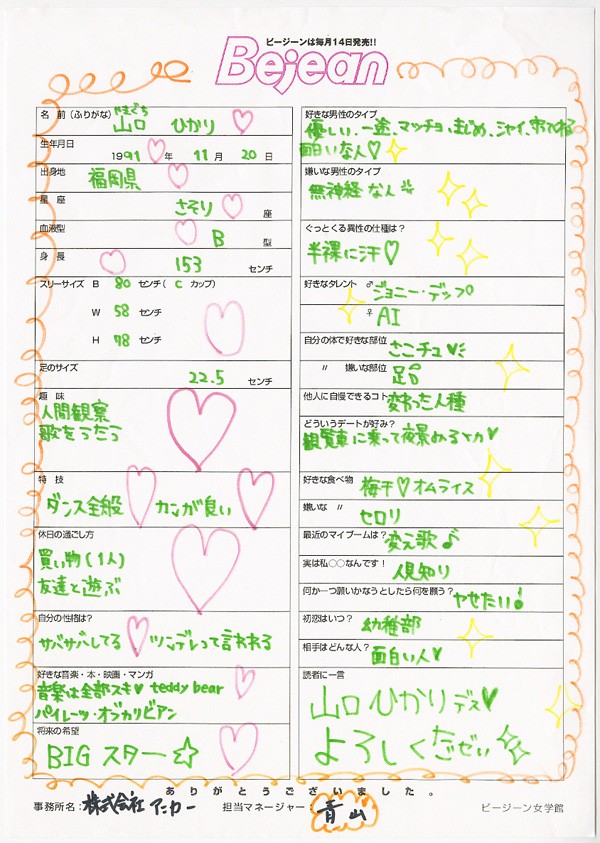 ビージーンは毎月14日発売!!
Bejean
名 前(ふりがな) やまぐち
山口 ひかり
生年月日
1991 年 11 月 20 日
出身地
福岡県
星 座
さそり 座
血液型
B 型
身 長
153 センチ
スリーサイズ B 80 センチ( C カップ)
W 58 センチ
H 78 センチ
足のサイズ
22.5 センチ
趣 味
人間観察
歌をうたう
特 技
ダンス全般 カンが良い
休日の過ごし方
買い物(1人)
友達と遊ぶ
自分の性格は?
サバサバしてる ツンデレって言われる
好きな音楽・本・映画・マンガ
音楽は全部スキ♥ teddy bear
パイレーツ・オブカリビアン
将来の希望
BIG スター☆
好きな男性のタイプ
優しい、一途、マッチョ、まじめ、シャイ、
面白いな人♡
嫌いな男性のタイプ
無神経な人
ぐっとくる異性の仕種は?
半裸に汗♡
好きなタレント ♂ ジョニー・デップ
♀ AI
自分の体で好きな部位 さこチュ♥
〃 嫌いな部位 足
他人に自慢できるコト 変わった人種
どういうデートが好み?
観覧車に乗って夜景みるとか♥
好きな食べ物 梅干♡オムライス
嫌いな 〃 セロリ
最近のマイブームは? 変え歌♪
実は私○○なんです! 人見知り
何か一つ願いかなうとしたら何を願う? ヤせたい!
初恋はいつ? 幼稚部
相手はどんな人? 面白い人♥
読者に一言
山口 ひかり デス♥
よろしくだぜぃ
ありがとうございました。
事務所名: 株式会社 アンカー 担当マネージャー: 青山 ビージーン女学館